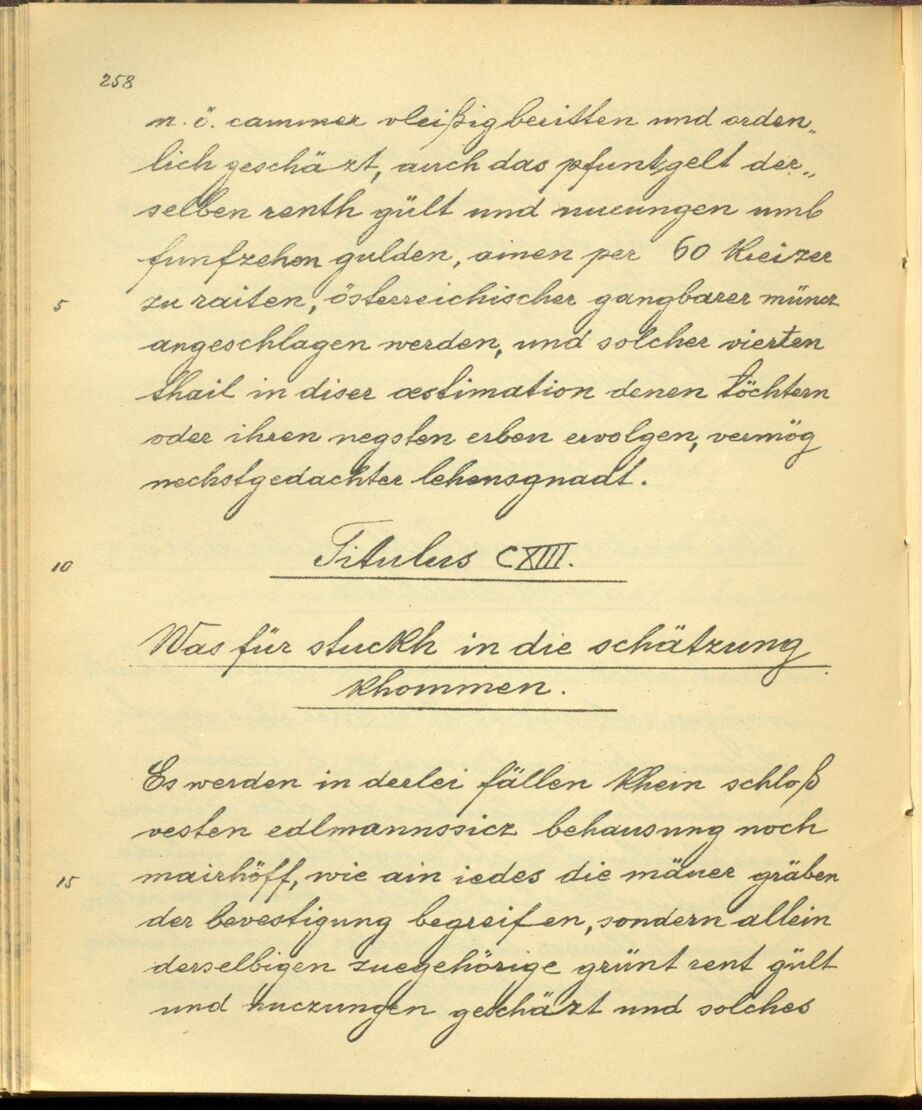 258
n. ö. cammer vleißig beritten und orden„
lich geschäzt, auch das pfuntgelt der„
selben renth gült und nucungen umb
funfzehen gulden, ainen per 60 kreizer
5 zu raiten, österreichischer gangbarer münz
angeschlagen werden, und solcher vierten
thail in diser æstimation denen töchtern
oder ihren negsten erben ervolgen, vermög
nechstgedachter lehensgnadt.
10 Titulus CXIII.
Was für stuckh in die schätzung
khommen.
Es werden in derlei fällen khein schloß
vesten edlmannssicz behausung noch
15 mairhöff, wie ain iedes die mäuer gräben
der bevestigung begreifen, sondern allein
derselbigen zuegehörige grünt rent gült
und nuczungen geschäzt und solches